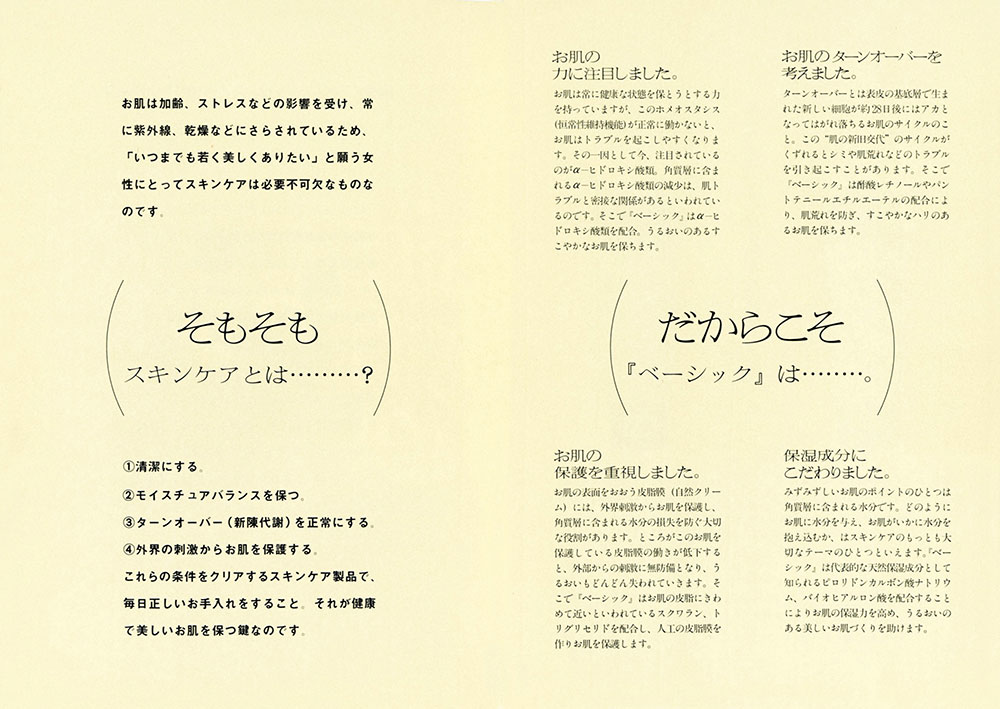 お肌は加齢、ストレスなどの影響を受け、常
に紫外線、乾燥などにさらされているため、
「いつまでも若く美しくありたい」と願う女
性にとってスキンケアは必要不可欠なものな
のです。
そもそも
スキンケアとは………?
①清潔にする。
②モイスチュアバランスを保つ。
③ターンオーバー(新陳代謝)を正常にする。
④外界の刺激からお肌を保護する。
これらの条件をクリアするスキンケア製品で、
毎日正しいお手入れをすること。それが健康
で美しいお肌を保つ鍵なのです。
お肌の
力に注目しました。
お肌は常に健康な状態を保とうとする力
を持っていますが、このホメオスタシス
(恒常性維持機能)が正常に働かないと、
お肌はトラブルを起こしやすくなりま
す。その一因として今、注目されている
のがα−ヒドロキシ酸類。角質層に含ま
れるα−ヒドロキシ酸類の減少は、肌ト
ラブルと密接な関係があるといわれてい
るのです。そこで『ベーシック』はα−ヒ
ドロキシ酸類を配合。うるおいのあるす
こやかなお肌を保ちます。
お肌のターンオーバーを
考えました。
ターンオーバーとは表皮の基底層で生ま
れた新しい細胞が約28日後にはアカと
なってはがれ落ちるお肌のサイクルのこ
と。この“肌の新旧交代”のサイクルが
くずれるとシミや肌荒れなどのトラブル
を引き起こすことがあります。そこで
『ベーシック』は酢酸レチノールやパン
トテニールエチルエーテルの配合によ
り、肌荒れを防ぎ、すこやかなハリのあ
るお肌を保ちます。
だからこそ
『ベーシック』は………。
お肌の
保護を重視しました。
お肌の表面をおおう皮脂膜(自然クリー
ム)には、外界刺激からお肌を保護し、
角質層に含まれる水分の損失を防ぐ大切
な役割があります。ところがこのお肌を
保護している皮脂膜の働きが低下する
と、外部からの刺激に無防備となり、う
るおいもどんどん失われていきます。そ
こで『ベーシック』はお肌の皮脂にきわ
めて近いといわれているスクワラン、ト
リグリセリドを配合し、人工の皮脂膜を
作りお肌を保護します。
保湿成分に
こだわりました。
みずみずしいお肌のポイントのひとつは
角質層に含まれる水分です。どのように
お肌に水分を与え、お肌がいかに水分を
抱え込むか、はスキンケアのもっとも大
切なテーマのひとつといえます。『ベー
シック』は代表的な天然保湿成分として
知られるピロリドンカルボン酸ナトリウ
ム、バイオヒアルロン酸を配合すること
によりお肌の保湿力を高め、うるおいの
ある美しいお肌づくりを助けます。